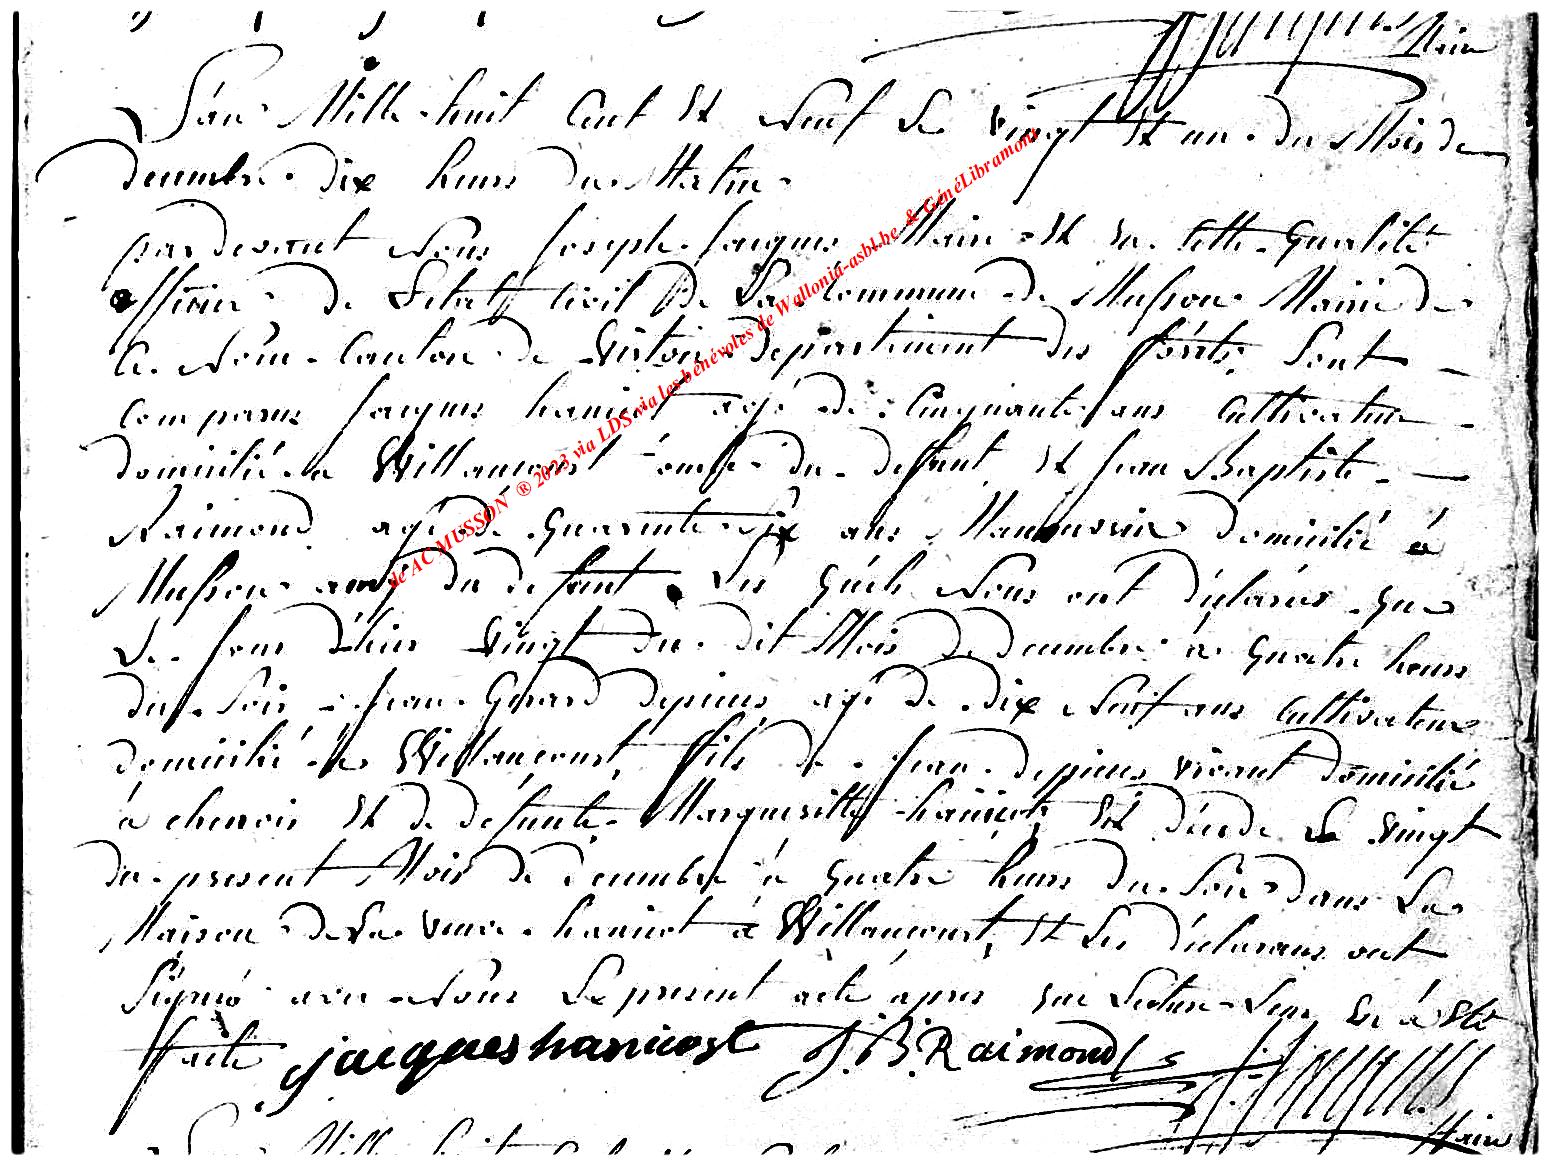 Maire
L'an Mille huit Cent Et Neuf Le vingt Et un du Mois de
decembre dix heurs du Matin
pardevant Nous Joseph Jacques Maire Et en Cette qualité
officier de Letat Civil de La Commune de Musson Mairie de
Ce Nom Canton de Virton departement des forêts, Sont
Comparus Jacques hanicot agé de Cinquante ans Cultivateur
domicilié a Willancourt oncle du deffunt Et Jean Baptiste
Raimond agé de quarente Six ans domicilié à
Musson amÿ du defunt Les quels Nous ont déclarés que
Le Jour d'hier Vingt du dit Mois de decembre à quatre heurs
du Soir Jean Gerard depienne agé de dix Neuf ans Cultivateur
domicilié à Willancourt, fils de Jean depienne vivant domicilié
à chenois Et de defunte Margueritte hanicot, Est décedé Le Vingt
du present Mois de decembre à quatre heurs du Soir dans La
Maison de La veuve hanicot à Willancourt, Et Les déclarans ont
Signé avec Nous Le present acte après que Lecture Leur En à Eté
faite jacques hanicost J.B. Raimond
Maire
L'an Mille huit
de AC MUSSON ® 2023 via LDS via les bénévoles de Wallonia-asbl.be & GénéLibramont